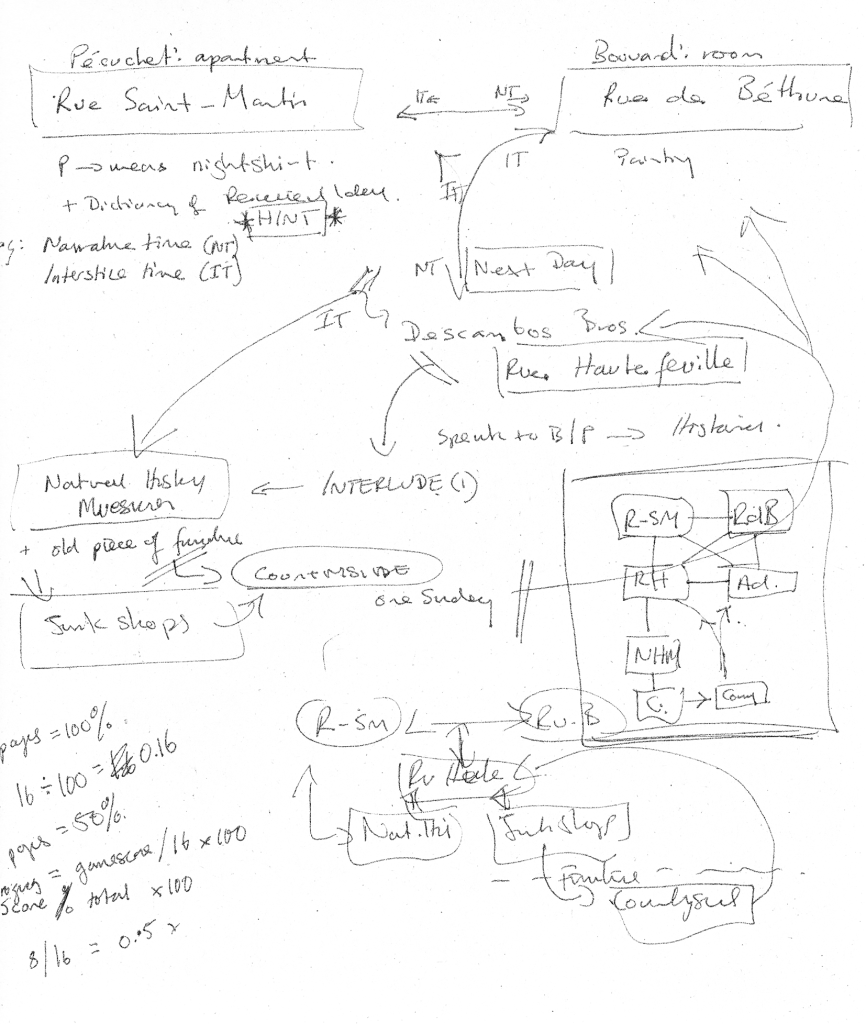 Pécuchet: apartment
Bouvard: room
Rue Saint-Martin
IT
NT
Rue de Béthune
P → means nightshirt.
IT
Pantry
+ Dictionary of Received Ideas.
IT
*HINT*
Narrative time (NT)
Interstice time (IT)
NT
Next Day
IT
Descambos Bros.
Rue Hautefeuille
Speak to B/P →
Natural History
Museum
← INTERLUDE (1)
+ old piece of furniture
COUNTRYSIDE
one Sunday
Junk shops
R-SM
RdB
RH
Ad.
NHM
C.
R-SM
Ru.B
Nat.His
Junkshops
Furniture
Countryside
pages = 100%
16 ÷ 100 = 0.16
pages = 50%.
= gamescore / 16 x 100
Score % total x 100
8/16 = 0.5 x